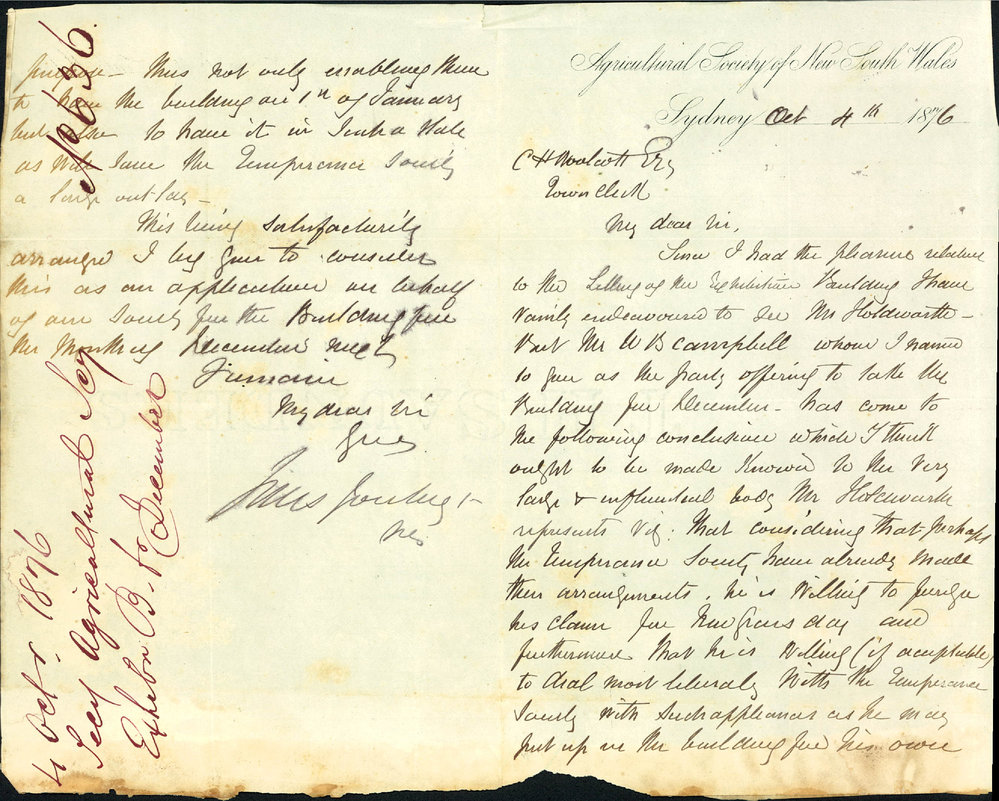 Agricultural Society of New South Wales
Sydney Oct 4th 1876
C H Woolcott Esq
Town Clerk
My dear Sir,
Since I had the pleasure relative
to the Letting of the Exhibition Building I have
vainly endeavoured to see Mr Holdsworth -
But Mr W B Campbell whom I named
to you as the party offering to take the
Building for December - has come to
the following conclusion which I think
ought to be made known to the very
large & influential body Mr Holdsworth
represents Viz: That considering that perhaps
the Temperance Society have already made
their arrangements, he is willing to forego
his claim for New Years day and
furthermore that he is willing (if acceptable)
to deal most liberally with the Temperance
Society with such appliances as he may
put up in the building for his own
purpose - thus not only enabling them
to have the building on 1st of January
but also to have it in such a state
as will save the Temperance Society
a large outlay -
This being satisfactorily
arranged I beg you to consider
this as an application on behalf
of our Society for the Building for
the Month of December next
I remain
My dear Sir
Yours
Jules Joubert
No 636.
4 Octr 1876
Secy Agricultural Socy
Exhibn B. for December